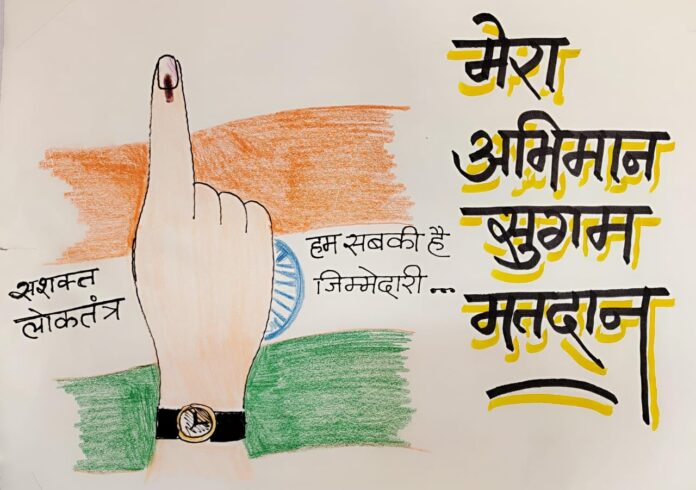 मेरा
अभिमान
सुगम
मतदान
सशक्त
लोकतंत्र
हम सबकी है
जिम्मेदारी...